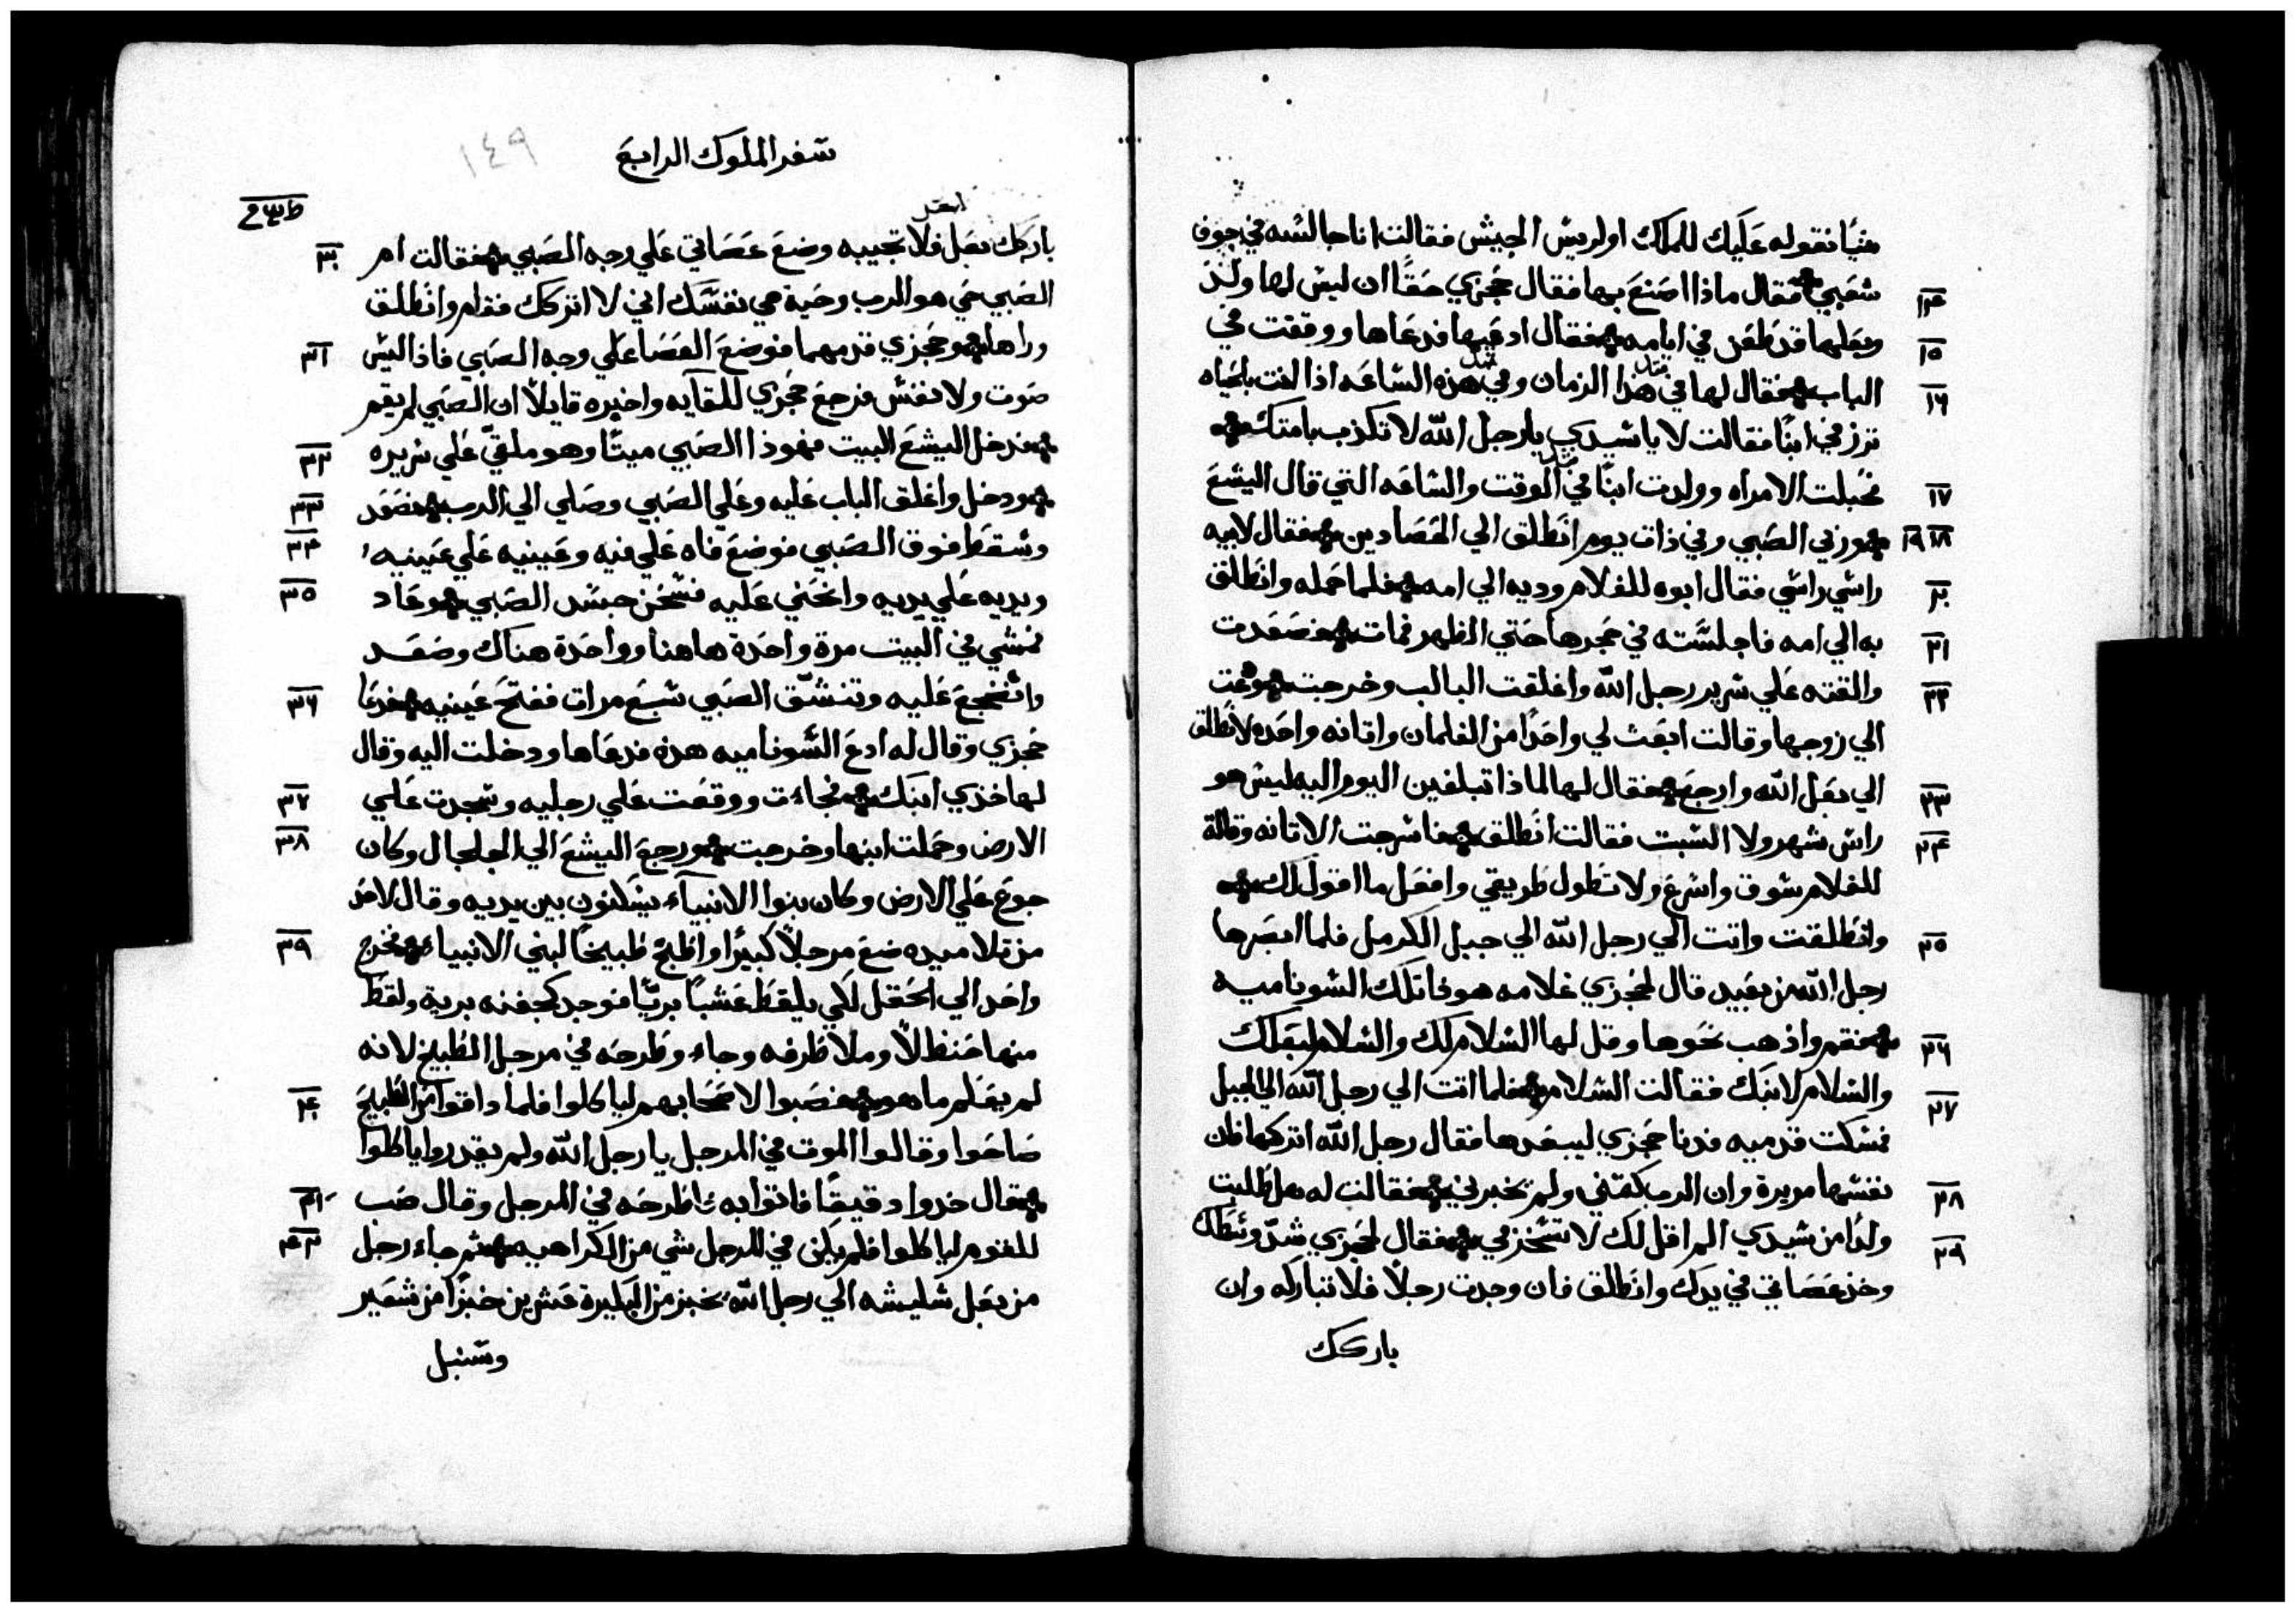 شيًا نقوله عليك للملك او لريس الجيش فقالت انا جالسه في جوف
١٤ شعبي فقال ماذا اصنع بها فقال حجزي حقًا ان ليس لها ولد
١٥ وبعلها قد طعن في ايامه فقال ادعيها فدعاها ووقفت في
١٦ الباب فقال لها في هذا الزمان وفي هذه الساعه اذا لفت بالحياه
ترزقي ابنًا فقالت لا يا سيدي يا رجل الله لا تكذب بامتك
١٧ فحبلت الامراه وولدت ابنًا في الوقت والساعه التي قال اليشع
١٨ ١٩ وربي الصبي وفي ذات يوم انطلق الي الحصادين فقال لابيه
٢٠ راسي راسي فقال ابوه للغلام وديه الي امه فلما حمله وانطلق
٢١ به الي امه فاجلسته في حجرها حتي الظهر فمات فصعدت
٢٢ والقته علي سرير رجل الله واغلقت الباب وخرجت ودعت
الي زوجها وقالت ابعث لي واحدًا من الغلمان واتانه واحده لانطلق
٢٣ الي بعل الله وارجع فقال لها لماذا تبلغين اليوم اليه ليس هو
٢٤ راس شهر ولا السبت فقالت انطلق فاسرجت الاتانه وقالة
للغلام سوق واسرع ولا تطول طريقي وافعل ما اقول لك
٢٥ وانطلقت واتت الي رجل الله الي جبل الكرمل فلما ابصرها
رجل الله من بعيد قال لحجزي غلامه هوذا تلك الشوناميه
٢٦ فقم واذهب نحوها وقل لها السلام لك والسلام لبعلك
والسلام لابنك فقالت السلام
٢٧ فلما اتت الي رجل الله الي الجبل
فمسكت قدميه فدنا حجزي ليبعدها فقال رجل الله اتركها فان
٢٨ نفسها مريرة وان الرب كمتني ولم يخبرني فقالت له هل طلبت
٢٩ ولدًا من سيدي الم اقل لك لا تسخر في فقال لحجزي شدّ وسطك
وخذ عصاتي في يدك وانطلق فان وجدت رجلًا فلا تباركه وان
باركك
سفر الملوك الرابع
١٤٩
باركك بعل فلا تجيبه وضع عصاتي علي وجه الصبي فقالت ام ٣٠
الصبي حي هو الرب وحية هي نفسك اني لا اتركك فقام وانطلق
وراها وحجزي قدمهما فوضع العصا علي وجه الصبي فاذا ليس ٣١
صوت ولا نفس فرجع حجزي للقآيه واخبره قايلًا ان الصبي لم يقم
فدخل اليشع البيت فهوذا الصبي ميتًا وهو ملقيّ علي سريره ٣٢
ودخل واغلق الباب عليه وعلي الصبي وصلي الي الرب فصعد ٣٣
وسقط فوق الصبي فوضع فاه علي فيه وعينيه علي عينيه ٣٤
ويديه علي يديه وانحني عليه فسخن جسد الصبي وعاد ٣٥
فمشي في البيت مرة واحدة هاهنا وواحدة هناك وصعد
واضجع عليه وتنشّق الصبي سبع مرات ففتح عينيه فدعا ٣٦
حجزي وقال له ادع الشوناميه هذه فدعاها ودخلت اليه وقال
لها خذي ابنك فجاءت ووقعت علي رجليه وسجدت علي ٣٧
الارض وحملت ابنها وخرجت ورجع اليشع الي الجلجال وكان ٣٨
جوع علي الارض وكان بنوا الانبيآء يسكنون بين يديه وقال لاحد
من تلاميده ضع مرجلًا كبيرًا واطبخ طبيخًا لبني الانبياء فخرج ٣٩
واحد الي الحقل لكي يلقط عشبًا بريًّا فوجد كجفنه برية ولقط
منها حنظالًا وملا ظرفه وجاء وطرحه في مرجل الطبيخ لانه
لم يعلم ما هو فصبوا لاصحابهم لياكلوا فلما داقوا من الطبيخ ٤٠
صاحوا وقالوا الموت في المرجل يا رجل الله ولم يقدروا ياكلوا
فقال خدوا دقيقًا فاتوا به فاطرحه في المرجل وقال صب ٤١
للقوم لياكلوا فلم يكن في المرجل شي من الكراهيه ثم جاء رجل ٤٢
من بعل شليشه الي رجل الله بخبز من البليرة عشرين خبزًا من شعير
وسنبل